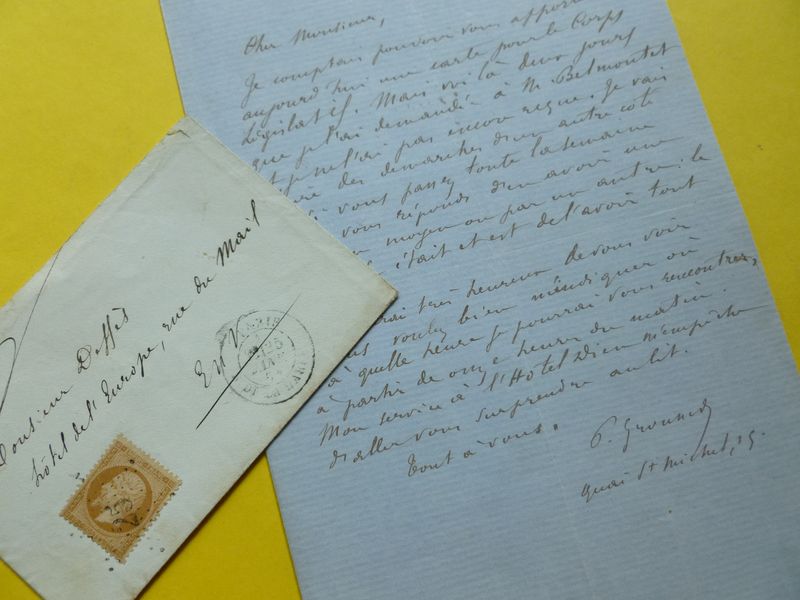 Cher Monsieur,
Je comptais pouvoir vous apporter
aujourd'hui une carte pour le Corps
Législatif. Mais voilà deux jours
que je l'ai demandée à M. Belmontet
et je ne l'ai pas encore reçue. Je vais
des démarches d'un autre côté
vous passez toute la semaine
vous réponds d'en avoir une
moyen ou par un autre: le
était et est de l'avoir tout
très heureux de vous voir
voulez bien m'indiquer où
à quelle heure je pourrai vous rencontrer,
à partir de onze heures du matin.
Mon service à l'Hôtel Dieu m'empêche
d'aller vous surprendre au lit.
Tout à vous.
P. Grousset
Quai St Michel, 19.
Monsieur Deffès
hôtel de l'Europe, rue du Mail
En Ville
25